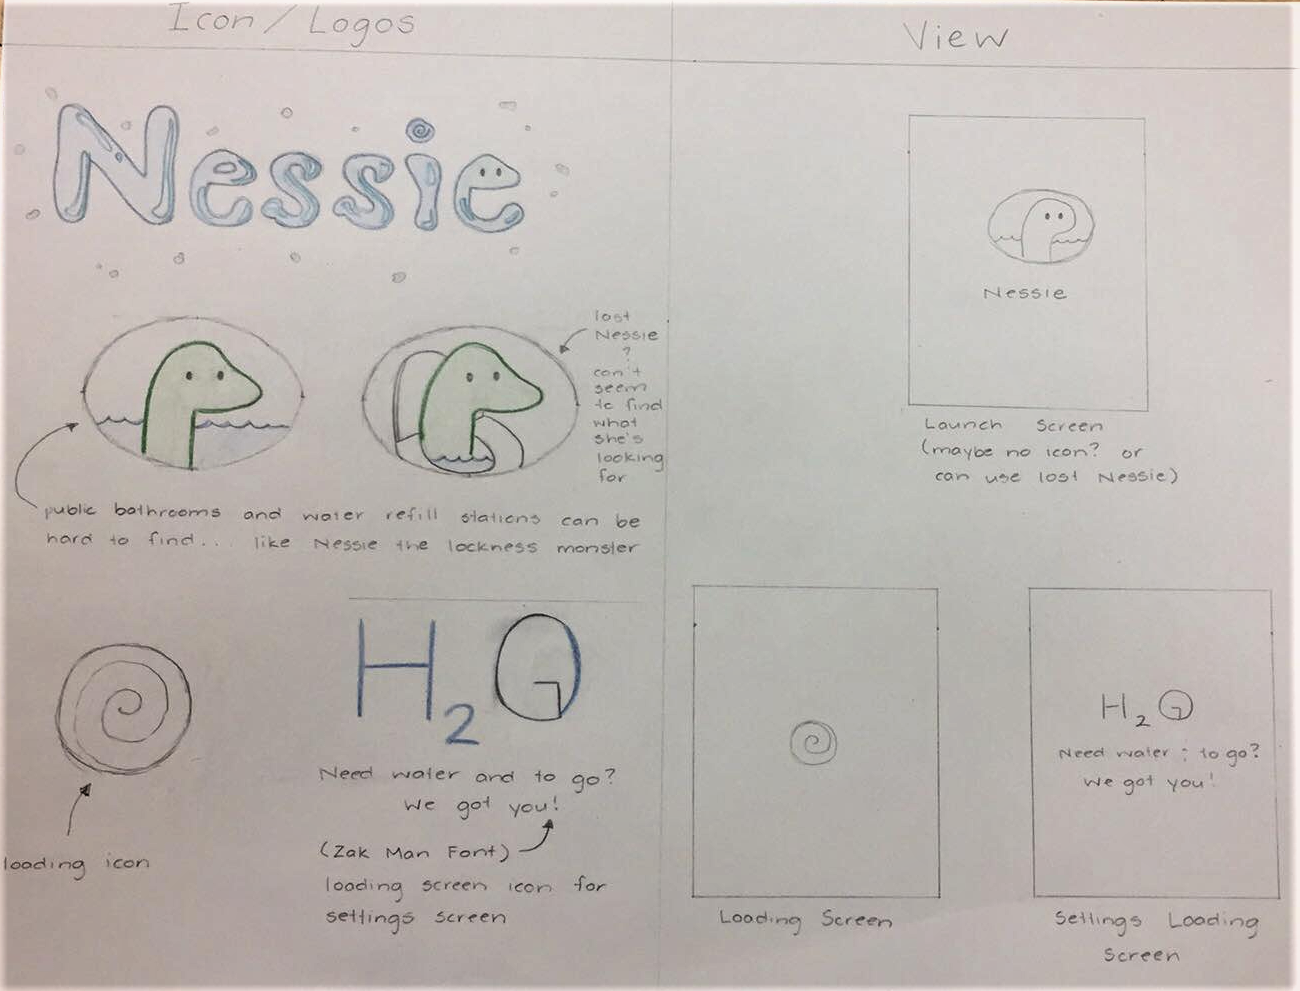 Icon / Logos
View
Nessie
lost
Nessie
?
can't
seem
to find
what
she's
looking
for
public bathrooms and water refill stations can be
hard to find... like Nessie the lockness monster
loading icon
H2G
Need water and to go?
We got you!
(Zak Man Font)
loading screen icon for
settings screen
Nessie
Launch Screen
(maybe no icon? or
can use lost Nessie)
Loading Screen
H2G
Need water ; to go?
We got you!
Settings Loading
Screen